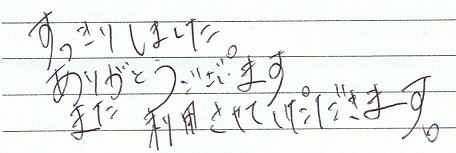 すっきりしました。
ありがとうございます
また 利用させていただきます。